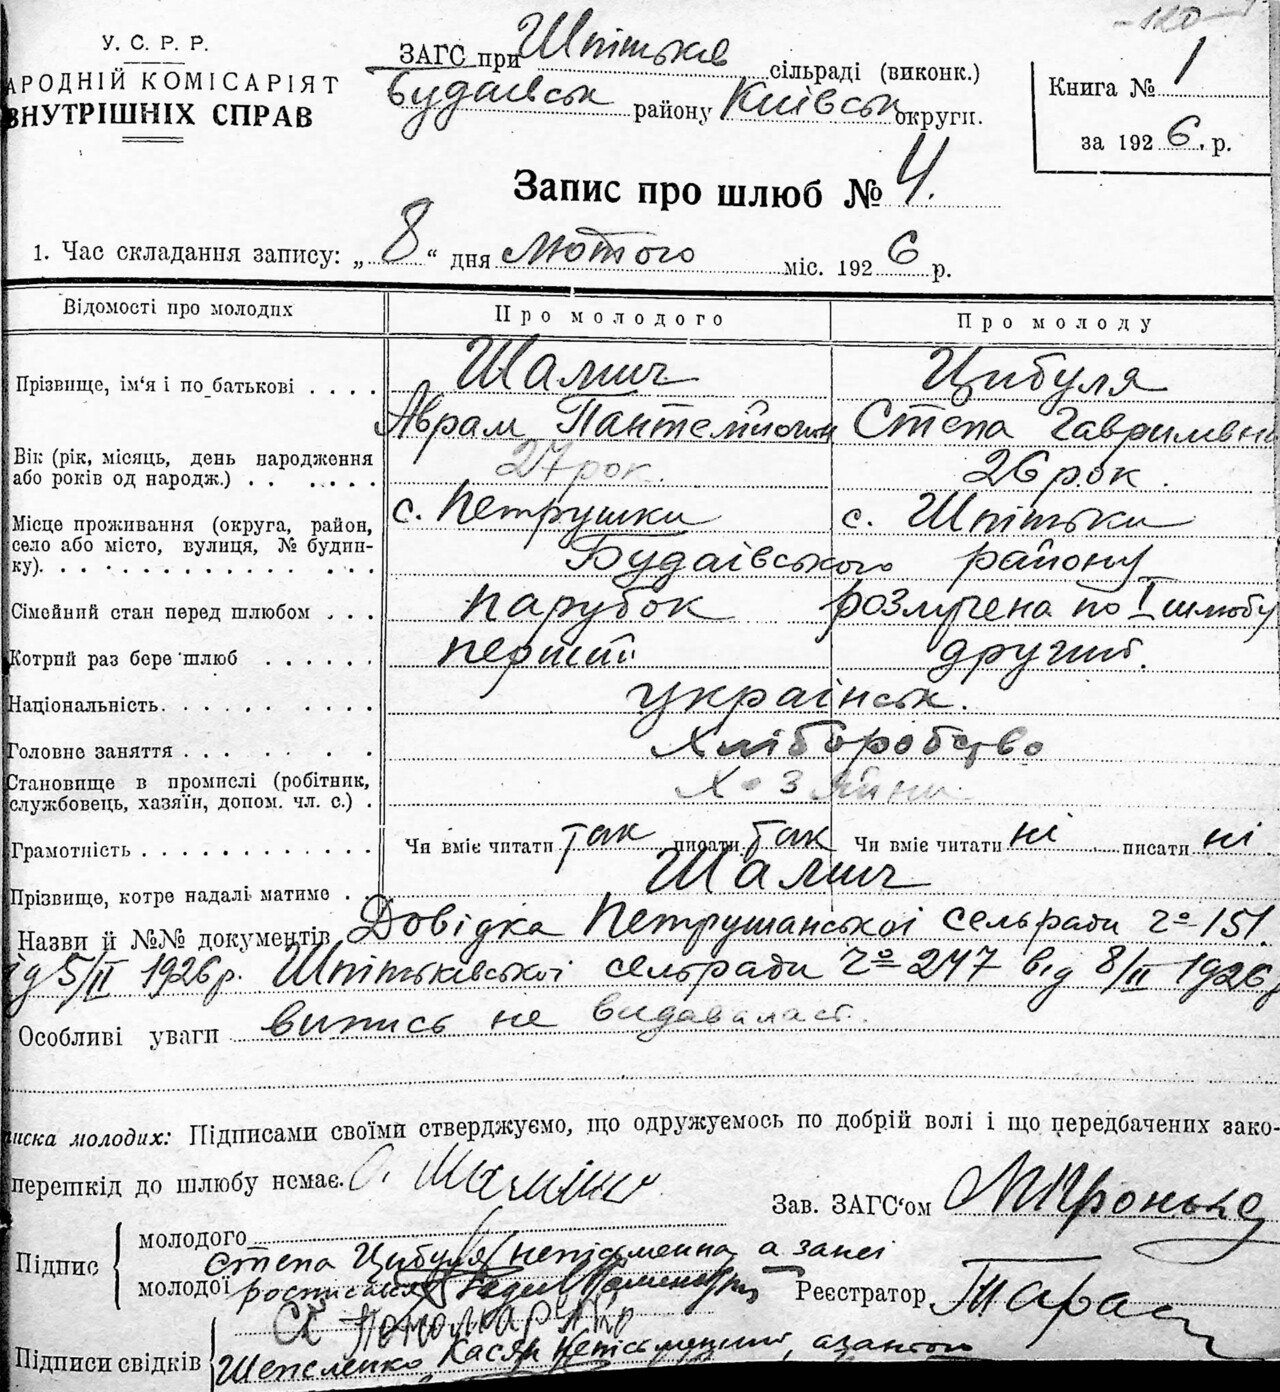 У. С. Р. Р.
АРОДНІЙ КОМІСАРІЯТ
ВНУТРІШНІХ СПРАВ
ЗАГС при Шпітьків сільраді (виконк.)
Будаївськ району Київськ округи.
Книга № 1
за 1926 р.
Запис про шлюб № 4.
1. Час складання запису: „8“ дня лютого міс. 1926 р.
Відомості про молодих
Про молодого
Про молоду
Прізвище, ім'я і по батькові . . . .
Шамич
Цибуля
Аврам
Степа Гаврилівна
Вік (рік, місяць, день народження або років од народж.) . . . . . . .
27 рок.
26 рок.
Місце проживання (округа, район, село або місто, вулиця, № будинку). . . . . . . . . . . . . .
с. Петрушки
с. Шпітьки
Будаівського району
Сімейний стан перед шлюбом . . .
парубок
розлучена по I шлюбу
Котрий раз бере шлюб . . . . . .
перший
другий.
Національність. . . . . . . . . .
українськ.
Головне заняття . . . . . . . .
Хліборобство
Становище в промислі (робітник, службовець, хазяїн, допом. чл. с.) .
Хозяйни
Грамотність . . . . . . . . . . . .
Чи вміє читати так писати так
Чи вміє читати ні писати ні
Прізвище, котре надалі матиме .
Шамич
Назви й №№ документів Довідка Петрушанської сельради чо 151.
від 5/II 1926 р. Шпітьківської сельради чо 247 від 8/II 1926 р
Особливі уваги випись не видавалась.
иска молодих: Підписами своїми стверджуємо, що одружуємось по добрій волі і що передбачених зако-
перешкід до шлюбу немає.
Зав. ЗАГС'ом
Підпис
молодого
Степа Цибуля непісьменна, а за неі
молодої росписався
Реєстратор Тарас
Підписи свідків
Касян непісьменний,